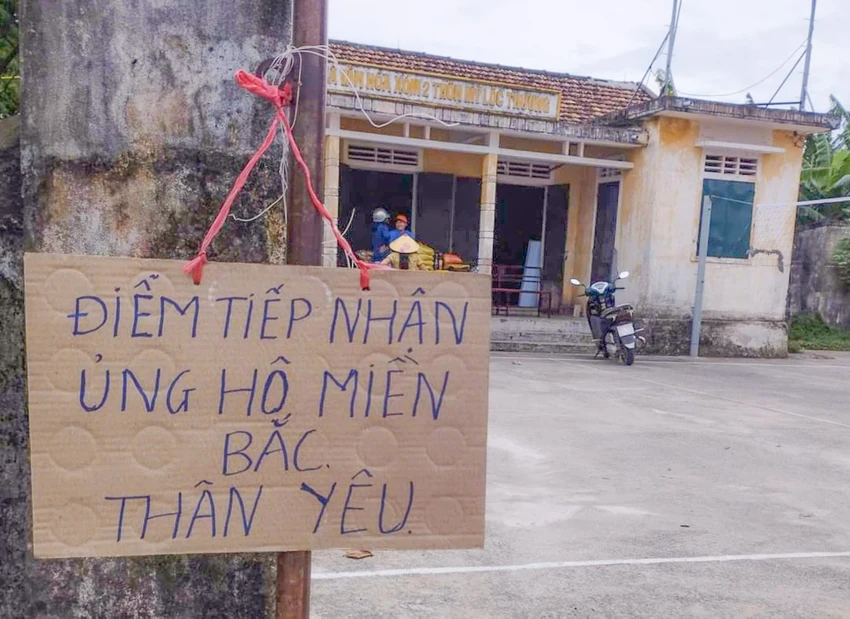 À VĂN HÓA XÓM 2 THÔN MỸ LỘC THƯỢNG
ĐIỂM TIẾP NHẬN
ỦNG HỘ MIỀN
BẮC.
THÂN YÊU.